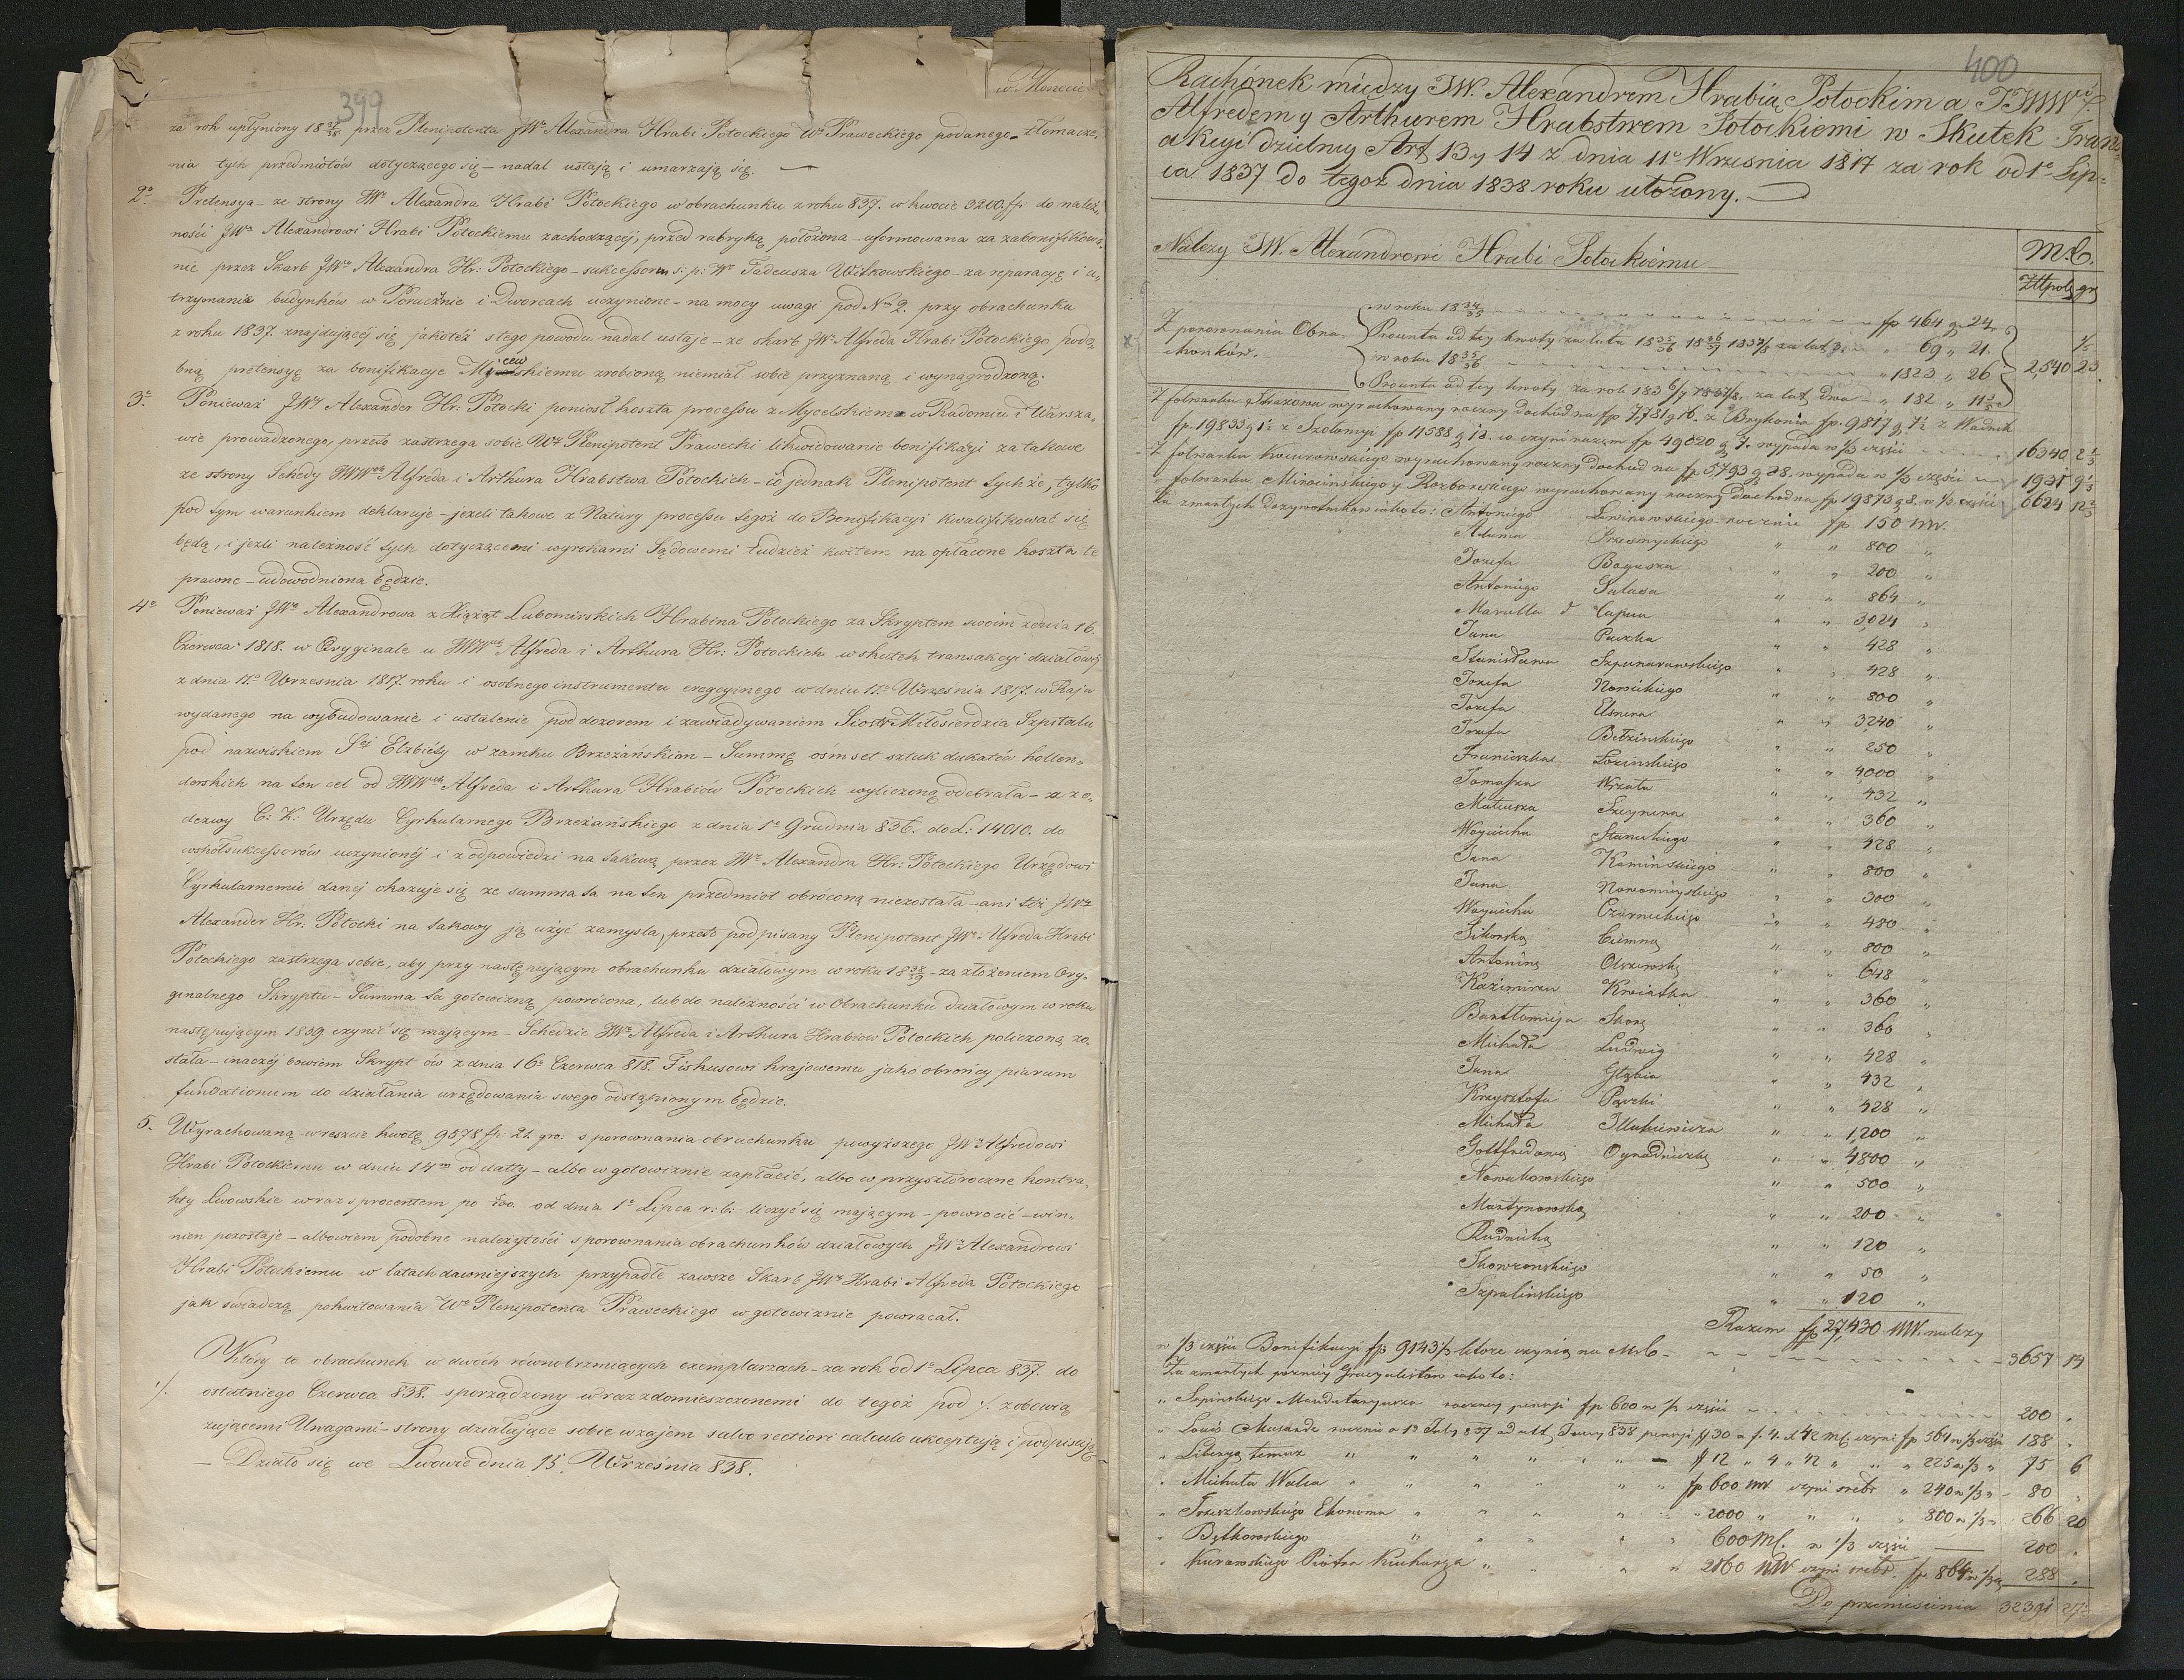 399
w Monecie
za rok upłyniony 18 37/38 przez Plenipotenta JWo Alexandra Hrabi Potockiego Wo Praweckiego podanego – złomacze.
nia tych przedmiotów dotyczącego się – nadal ustają i umarzają się. —
2o Pretensya – ze strony JWo Alexandra Hrabi Potockiego w obrachunku z roku 837. w kwocie 3200. fp: do należ.
ności JWu Alexandrowi Hrabi Potockiemu zachodzącej, przed rubryką położona – uformowana za zabonifikowa.
nie przez Skarb JWo Alexandra Hr: Potockiego – sukcessorom s: p: Wo Tadeusza Witkowskiego – za reparacyę i u,
trzymania budynków w Porucznie i Dworcach uczynione – na mocy uwagi pod No 2. przy obrachunku
z roku 1837. znajdującej się jakoteż z tego powodu nadal ustaje – że skarb JWo Alfreda Hrabi Potockiego podo,
bną pretensyę za bonifikacye Mycielskiemu zrobioną niemiał sobie przyznaną i wynagrodzoną.
3o Ponieważ JWy Alexander Hr: Potocki poniosł koszta processu z Mycelskiem w Radomiu i Warsza,
wie prowadzonego, przeto zastrzega sobie Wy Plenipotent Prawecki likwidowanie bonifikacyi za takowe
ze strony Schedy JWWch Alfreda i Arthura Hrabstwa Potockich – co jednak Plenipotent tychże, tylko
pod tym warunkiem deklaruje – jeżeli takowe z Natury processu tegoż do Bonifikacyi kwalifikować się
będą, i jeżli należność tych dotyczącemi wyrokami Sądowemi tudzież kwitem na opłacone koszta te
prawne – udowodniona będzie.
4o Ponieważ JWa Alexandrowa z Xiążąt Lubomirskich Hrabina Potockiego za Skryptem swoim z dnia 16.
Czerwca 1818. w Oryginale u JWWch Alfreda i Arthura Hr: Potockich w skutek transakcyi działowej
z dnia 11o Września 1817. roku i osobnego instrumentu erekcyjnego w dniu 11o Września 1817. w Raju
wydanego na wybudowanie i ustalenie pod dozorem i zawiadywaniem Siostr Miłosierdzia Szpitalu
pod nazwiskiem Stej Elżbiety w zamku Brzeżańskiem – Summę ośmset sztuk dukatów hollen,
derskich na ten cel od JWWch Alfreda i Arthura Hrabiów Potockich wyliczoną odebrała – a z o,
dezwy C: K: Urzędu Cyrkularnego Brzeżańskiego z dnia 1o Grudnia 836. do L: 14010. do
współsukcessorów uczynionéj i z odpowiedzi na takową przez JWo Alexandra Hr: Potockiego Urzędowi
Cyrkularnemu danej okazuje się ze summa ta na ten przedmiot obróconą niezostała – ani też JWy
Alexander Hr: Potocki na takowy ją użyć zamysla, przeto podpisany Plenipotent JWo Alfreda Hrabi
Potockiego zastrzega sobie, aby przy następującym obrachunku działowym w roku 18 38/39 – za złożeniem Ory,
ginalnego Skryptu – Summa ta gotowizną powrócona, lub do należności w Obrachunku działowym w roku
następującym 1839 czynić się mającym – Schedzie JWo Alfreda i Arthura Hrabiow Potockich policzoną zo,
stała – inaczéj bowiem Skrypt ów z dnia 16o Czerwca 818. Fiskusowi krajowemu jako obrońcy piarum
fundationum do działania urzędowania swego odstąpionym będzie.
5. Wyrachowaną wreszcie kwotę 9578 fp: 21. gro. s porownania obrachunku powyższego JWu Alfredowi
Hrabi Potockiemu w dniu 14m od datty – albo w gotowiznie zapłacić, albo w przyszłoroczne kontra,
kty Lwowskie wraz s procentem po 5/00. od dnia 1o Lipca r: b: liczyć się mającym – powrocić – win,
nien pozostaje – albowiem podobne należytości s porownania obrachunków działowych JWu Alexandrowi
Hrabi Potockiemu w latach dawniejszych przypadłe zawsze Skarb JWo Hrabi Alfreda Potockiego
jak świadczą pokwitowania Wo Plenipotenta Praweckiego w gotowiznie powracał.
Który to obrachunek w dwóch równobrzmiących exemplarzach – za rok od 1o Lipca 837. do
ostatniego Czerwca 838. sporządzony wraz z domieszczonemi do tegoż pod ·/. zobowią
zującemi Uwagami – strony działające sobie wzajem salvo rectiori calculo akceptują i podpisują
– Działo się we Lwowie dnia 15. Września 838.
400
Rachónek między JW. Alexandrem Hrabią Potockim a JJWW
Alfredem y Arthurem Hrabstwem Potockiemi w Skutek Tran=
akcyi dzielney Art 13 y 14 z dnia 11o Wrzesnia 1817 za rok od 1o Lip=
ca 1837 do tegoż dnia 1838 roku utożony.
Nalezy JW. Alexandrowi Hrabi Potockiemu
M.C.
Złtpols gr
w roku 18 34/35 fp 464 g 24
Z porownania Obra,
chonków.
Prounta od tey kwoty za lata 18 35/36 18 36/37 1837/8 za lat 3. " 69 " 21
w roku 18 35/36 " 1823 " 26
Prounta od tey kwoty za rok 183 6/7 1837/8 za lat dwa – " 182 " 11
2,540 23
Z folwarku Strazowa wyrachowany roczny dochód na fp 7,781 g 16. z Brykonia fp. 9817 g 7½ z Wadnik
fp. 19833 g 1½ z Szolomyi fp 11588 g 12. co czyni razem fp 49020 g 7. wypada w ⅓ części 16340 2⅓
Z folwarku Kocurowskiego wyrachowany roczny dochód na fp 5793 g 28. wypada w ⅓ części 1931 9⅓
" folwarku Mirocinskiego y Rozborskiego wyrachowany roczny dochód na fp 19873 g 8. w ⅓ części 6624 12⅔
Za zmarłych dozywotnikow iako to: Antoniego Lewinowskiego rocznie fp 150 WW.
Adama Przesmyckiego " " 800 "
Jozefa Bogusza " " 200 "
Antoniego Sulawa " " 864 "
Marcella d' Capua " " 3,024 "
Jana Paczka " " 428 "
Stanisława Szpunarowskiego " " 428 "
Jozefa Nowickiego " " 800 "
Jozefa Elsnera " " 3240 "
Jozefa Bełzinskiego " " 250 "
Franciszka Lozinskiego " " 4,000 "
Tomasza Wrzata " " 432 "
Mateusza Szeynena " " 360 "
Woyciecha Staneckiego " " 428 "
Jana Kaminskiego " " 800 "
Jana Nowomieyskiego " " 300 "
Woyciecha Czarneckiego " " 480 "
Sikorską Ciemną " " 800 "
Antoninę Olszewską " " 648 "
Kazimierza Kwiatka " " 360 "
Bartłomieja Skorę " " 360 "
Michała Ludwig " " 428 "
Jana Głąbia " " 432 "
Krzysztofa Paczki " " 428 "
Michała Illukiewicza " " 1,200 "
Gottfredową Ogrodniczkę " " 4800 "
Nowakowskiego " " 500 "
Martynowską " " 200 "
Rudnicką " " 120 "
Skowronskiego " " 50 "
Szpalinskiego " " 120 "
Razem fp 27,430 WW. nalezy
w ⅓ części Bonifikacyi fp 9143⅓ ktore czynią na M.C. – 3657 14
Za zmarłych pozniey Gracyalistow iako to:
" Szpinskiego Mandataryusza roczney pensyi fp 600 w ⅓ części 200 "
" Louis Musande rocznie a 1o July 837 ad ult. Juny 838 pensyi fl 30 a f. 4. x 42 Mf. czyni fp 564 w ⅓ części 188 "
" Liberyą temuz " " " fl 12 " 4 " 42 " " " 225 w ⅓ " 75 6
" Michała Walca " " " fp 600 WW czyni srebr " 240 w ⅓ " – 80 "
" Trzeszkowskiego Ekonoma " " " 2000 " " " 800 w ⅓ " 266 20
" Bętkowskiego " " " 600 Mf. w ⅓ części — 200 "
" Kurowskiego Piotra Kucharza " " " 2160 WW czyni srebr. fp. 864 w ⅓ 288 "
Do przeniesienia 32391 27